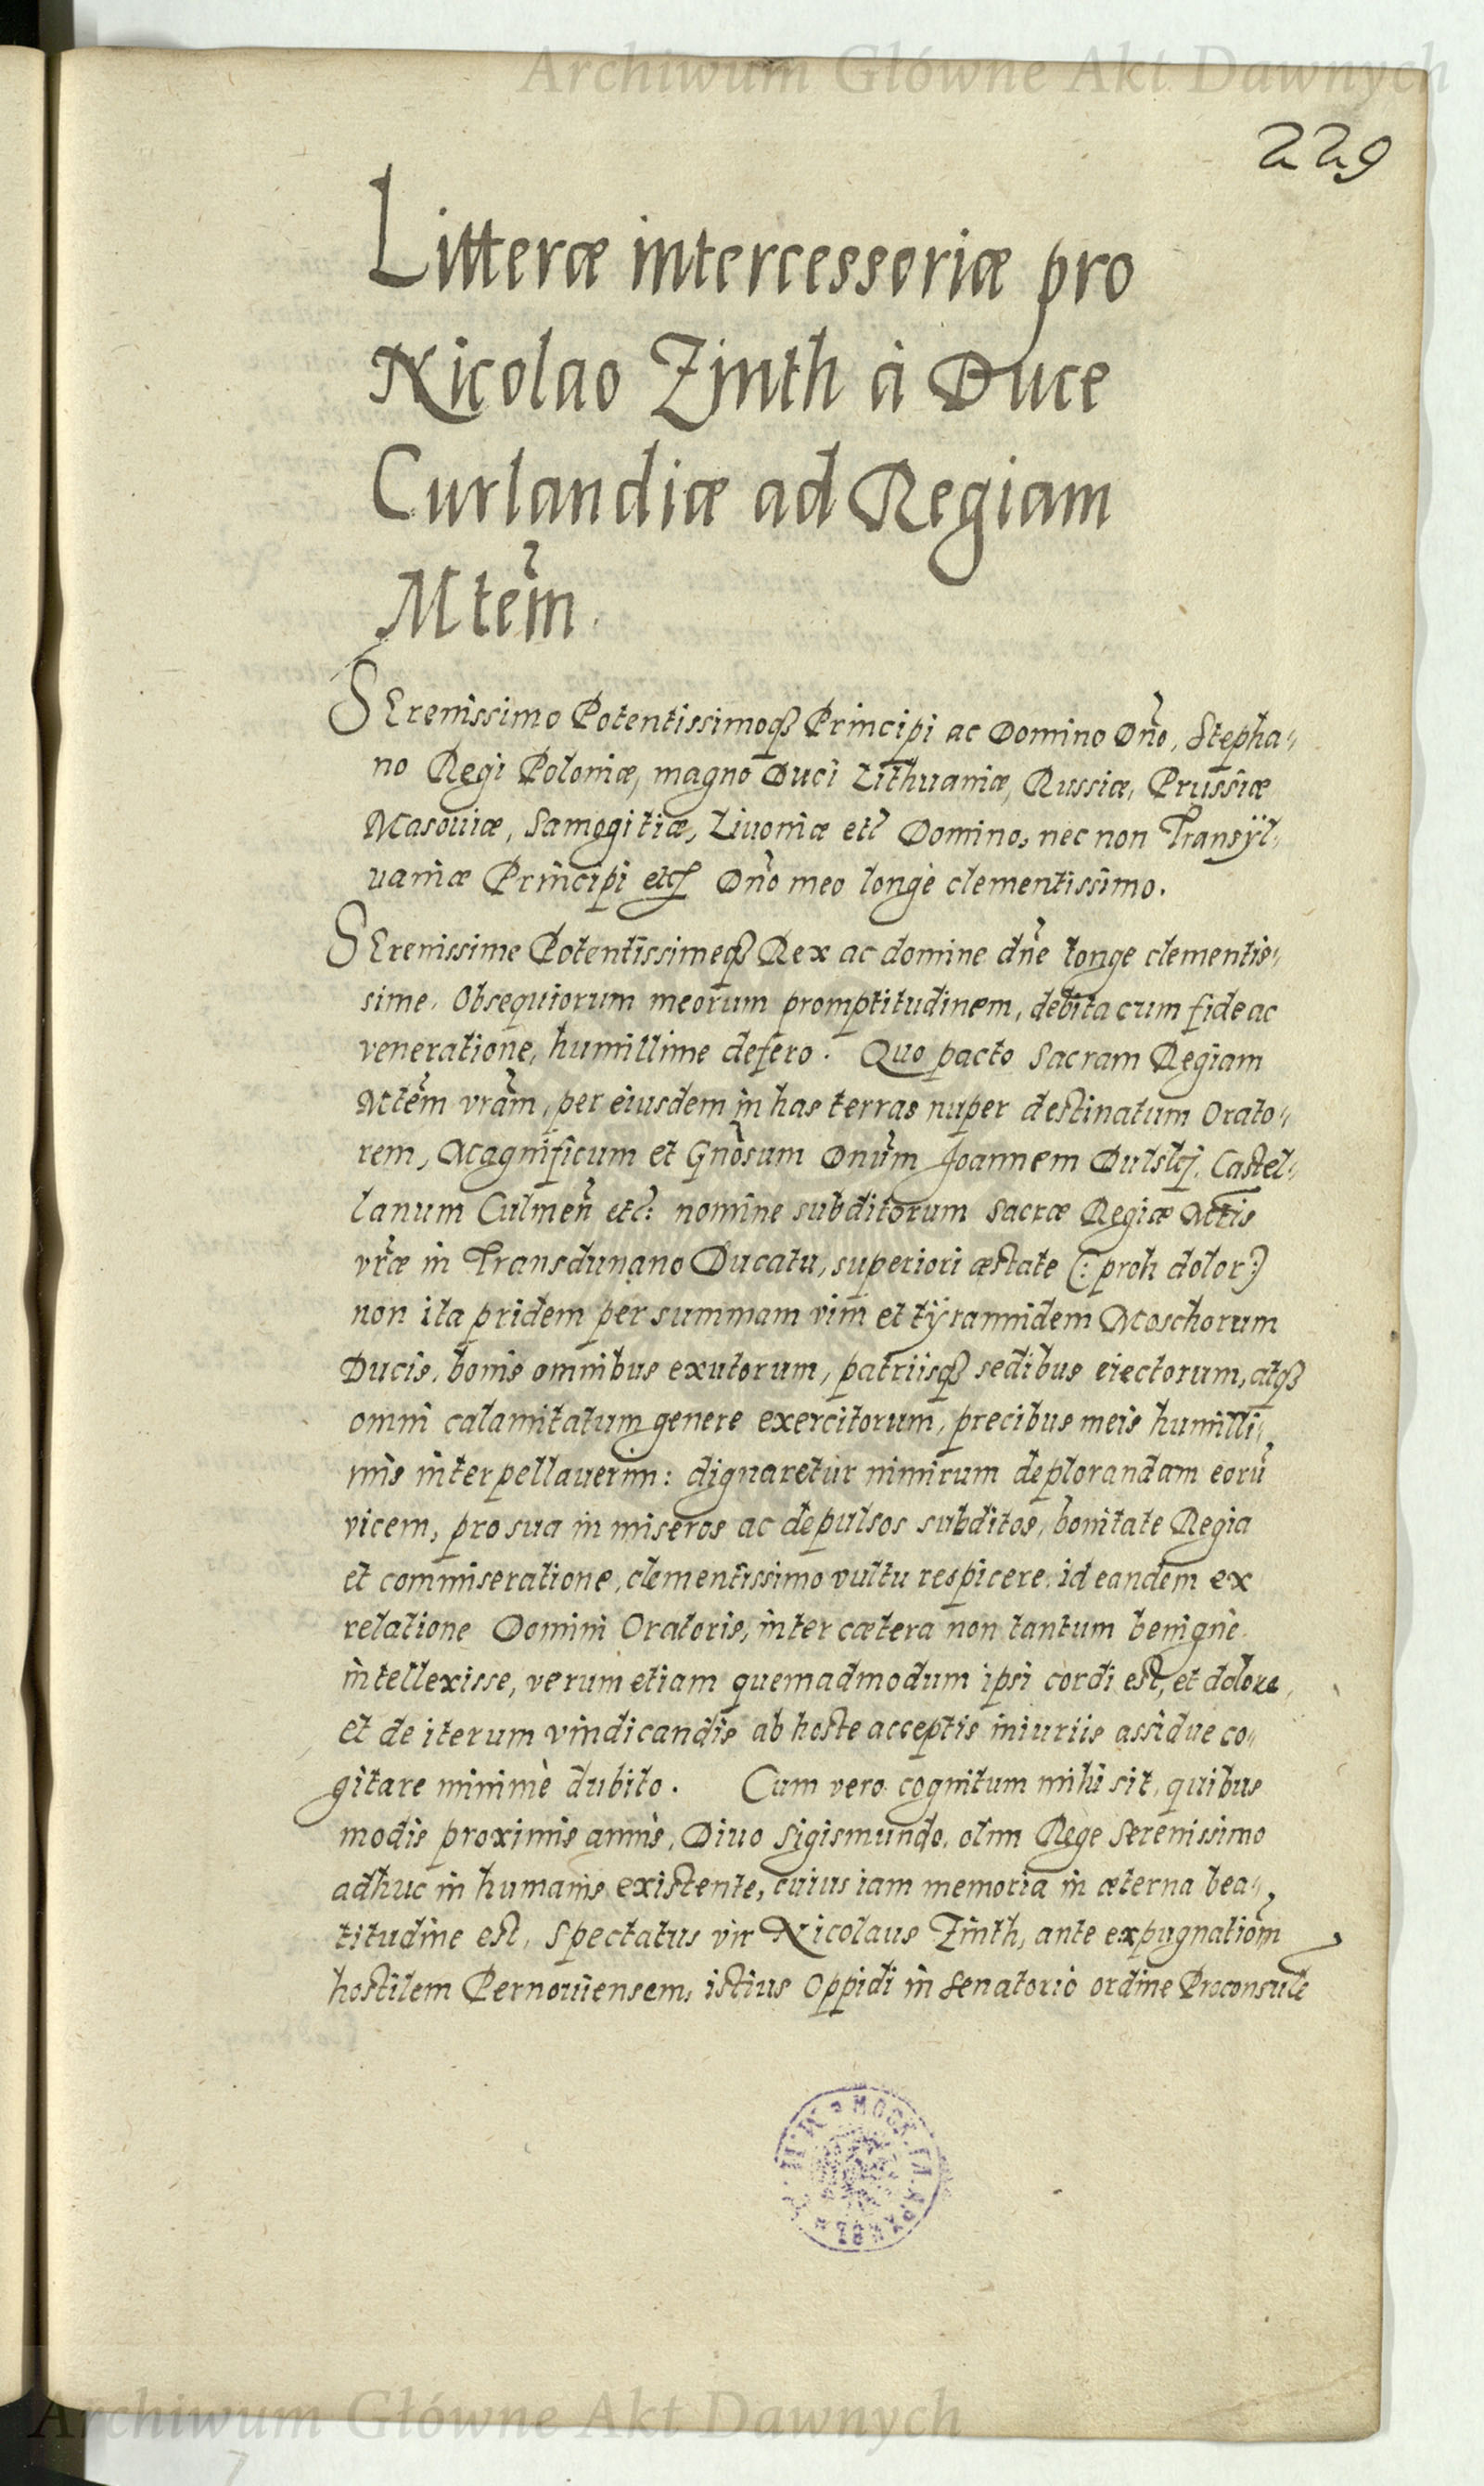 Archiwum Główne Akt Dawnych
229
Litteræ intercessoriæ pro
Nicolao Zinth à Duce
Curlandiæ ad Regiam
Mtem̃.
SErenissimo Potentissimoqꝫ Principi ac Domino Dño, Stepha-
no Regi Poloniæ, magno Duci Lithuaniæ, Russiæ, Prussiæ
Masouiæ, Samogitiæ, Liuoniæ etc Domino, nec non Transÿl-
uaniæ Principi etc Dño meo longè clementissimo.
SErenissime Potentissimeqꝫ Rex ac domine dñe longe clementis-
sime. Obsequiorum meorum promptitudinem, debita cum fide ac
veneratione, humillime defero. Quo pacto Sacram Regiam
Mtem̃ vram̃, per eiusdem in has terras nuper destinatum Orato-
rem, Magnificum et Gnõsum Dnum̃ Joannem Dulsky, Castel-
lanum Culmeñ etc: nomine subditorum Sacræ Regiæ Mtis
vræ̃ in Transdunano Ducatu, superiori æstate (: proh dolor:)
non ita pridem per summam vim et tÿrannidem Moschorum
Ducis, bonis omnibus exutorum, patriisqꝫ sedibus eiectorum, atqꝫ
omni calamitatum genere exercitorum, precibus meis humilli-
mis interpellauerim: dignaretur nimirum deplorandam eorũ
vicem, pro sua in miseros ac depulsos subditos, bonitate Regia
et commiseratione, clementissimo vultu respicere. id eandem ex
relatione Domini Oratoris, inter cætera non tantum benignè
intellexisse, verum etiam quemadmodum ipsi cordi est, et dolore,
et de iterum vindicandis ab hoste acceptis iniuriis assidue co-
gitare minimè dubito. Cum vero cognitum mihi sit, quibus
modis proximis annis, Diuo Sigismundo, olim Rege Serenissimo
adhuc in humanis existente, cuius iam memoria in æterna bea-
titudine est, Spectatus vir Nicolaus Zinth, ante expugnationm̃
hostilem Pernouiensem, istius Oppidi in Senatorio ordine Proconsule
Archiwum Główne Akt Dawnych